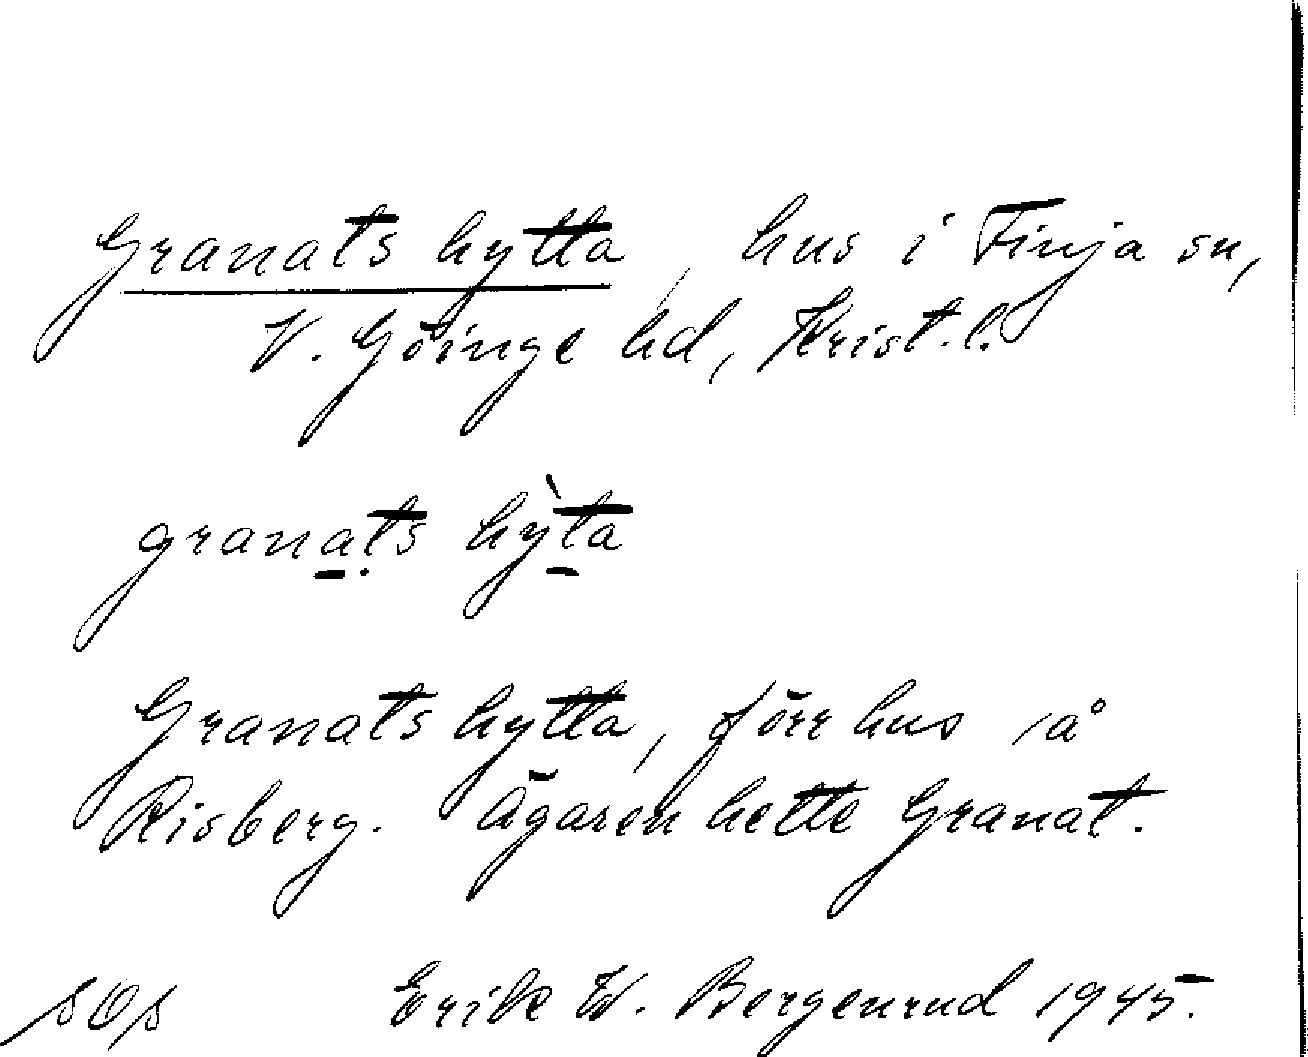 Granats hytta, hus i Finja sn,
V. Göinge hd, Krist. l.
granats hỳta
Granats hytta, förr hus å
Risberg. Ägaren hette Granat.
Erik W. Bergenrud 1945.